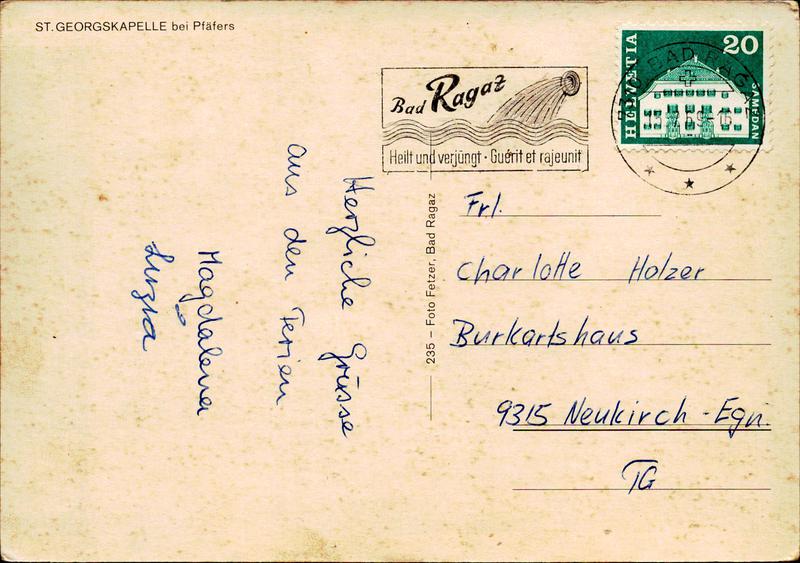 ST. GEORGSKAPELLE bei Pfäfers
HELVETIA
20
SAMEDAN
BAD RAGAZ
Bad Ragaz
Heilt und verjüngt · Guérit et rajeunit
Herzliche Grüsse
aus den Ferien
Magdalena
Luzia
235 – Foto Fetzer, Bad Ragaz
Frl.
Charlotte Holzer
Burkartshaus
9315 Neukirch - Egn.
TG